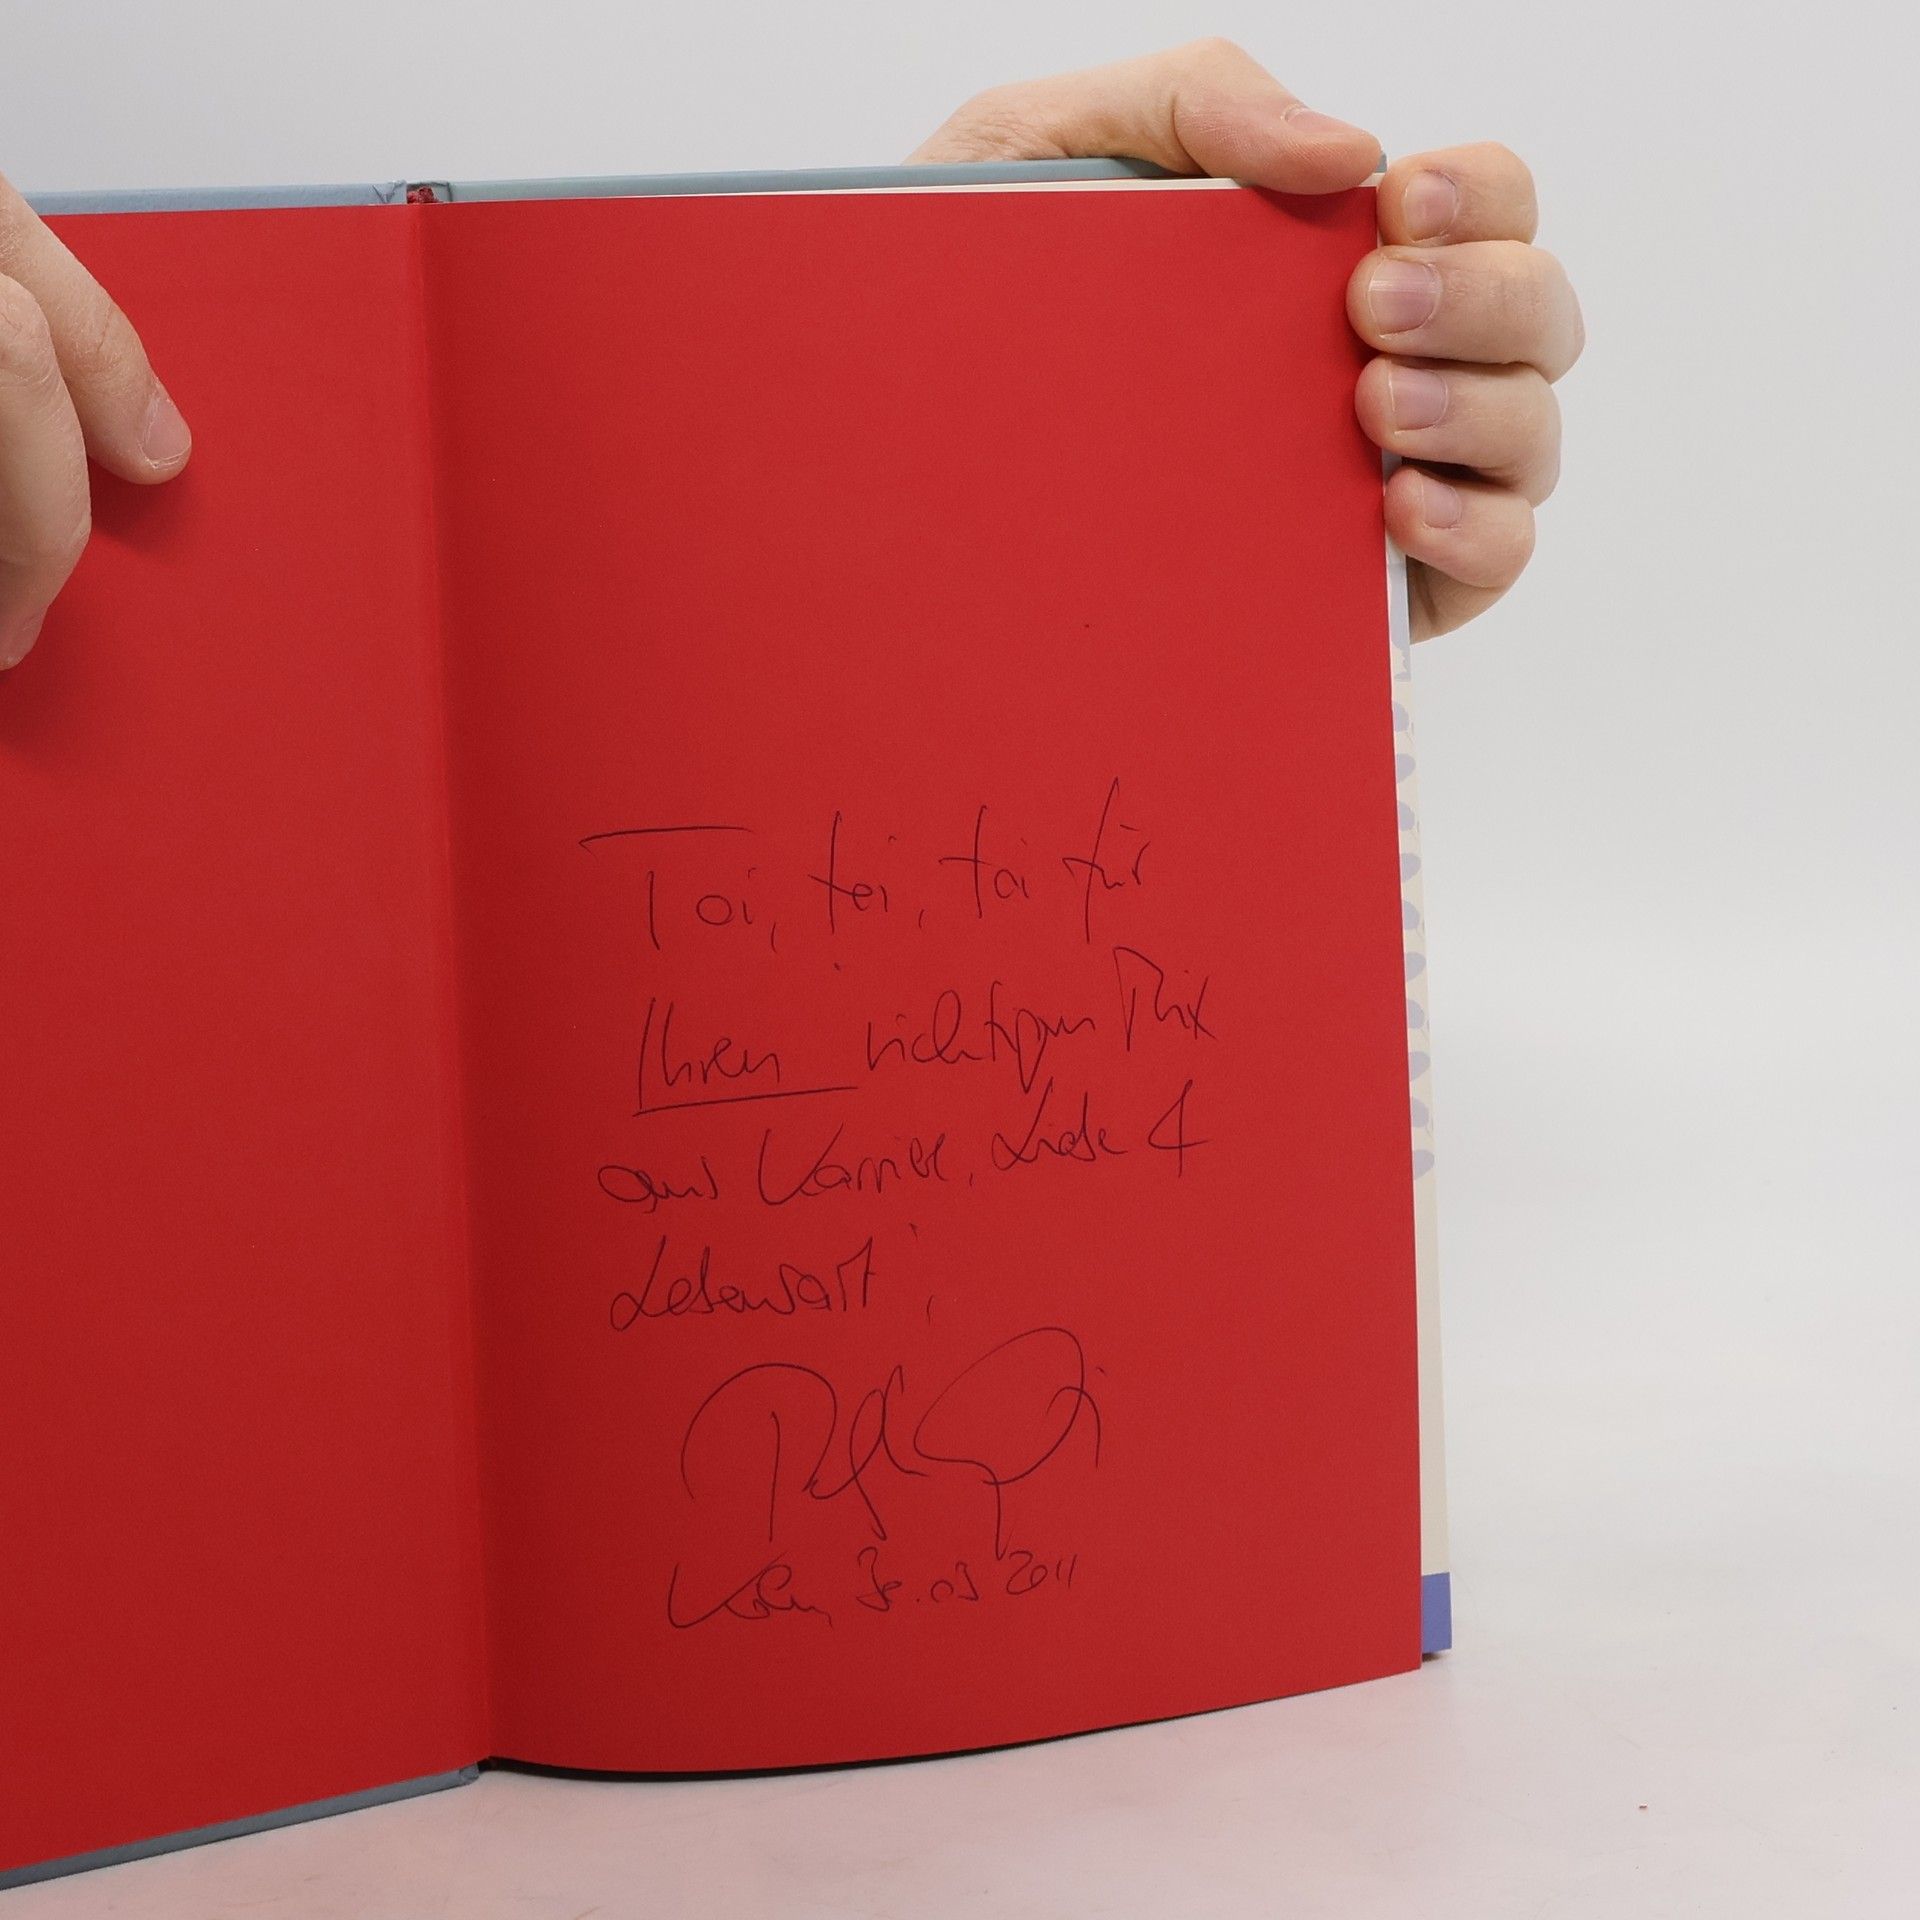 Toi, toi, toi für
Ihren richtigen Mix
aus Karriere, Liebe &
Lebensart,
Köln, 30.03 2011